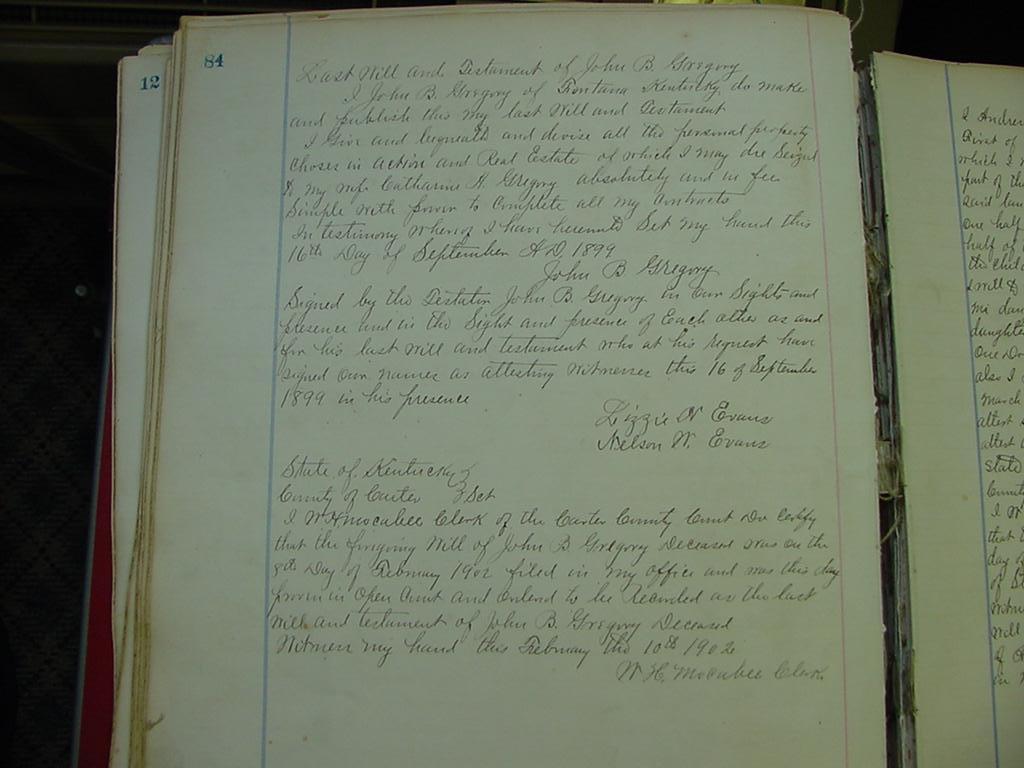 12
84
Last Will and Testament of John B. Gregory
I John B. Gregory of Fontana Kentucky do make
and publish this my last Will and Testament
I Give and bequeath and devise all the personal property
choses in action and Real Estate of which I may die Seized
to my wife Catharine H. Gregory absolutely and in fee
Simple with power to Complete all my Contracts
In testimony whereof I have hereunto Set my hand this
16th Day of September A.D. 1899
John B Gregory
Signed by the Testator John B. Gregory in our Sights and
presence and in the Sight and presence of Each other as and
for his last will and testament who at his request have
signed our names as attesting Witnesses this 16 of September
1899 in his presence
Lizzie N Evans
Nelson W. Evans
State of Kentucky
County of Carter Sct
I W H Mocabee Clerk of the Carter County Court do Certify
that the foregoing Will of John B Gregory Deceased was on the
8th Day of February 1902 filed in my office and was this day
proven in Open Court and Ordered to be Recorded as the last
Will and testament of John B. Gregory Deceased
Witness my hand this February the 10th 1902
W. H. Mocabee Clerk
I Andrew
First of
which I
part of the
said
one half
half of
the
I will
daughte
One
also I
March
attest
attest
State
County
I W
that
day of
of
Will
of
in